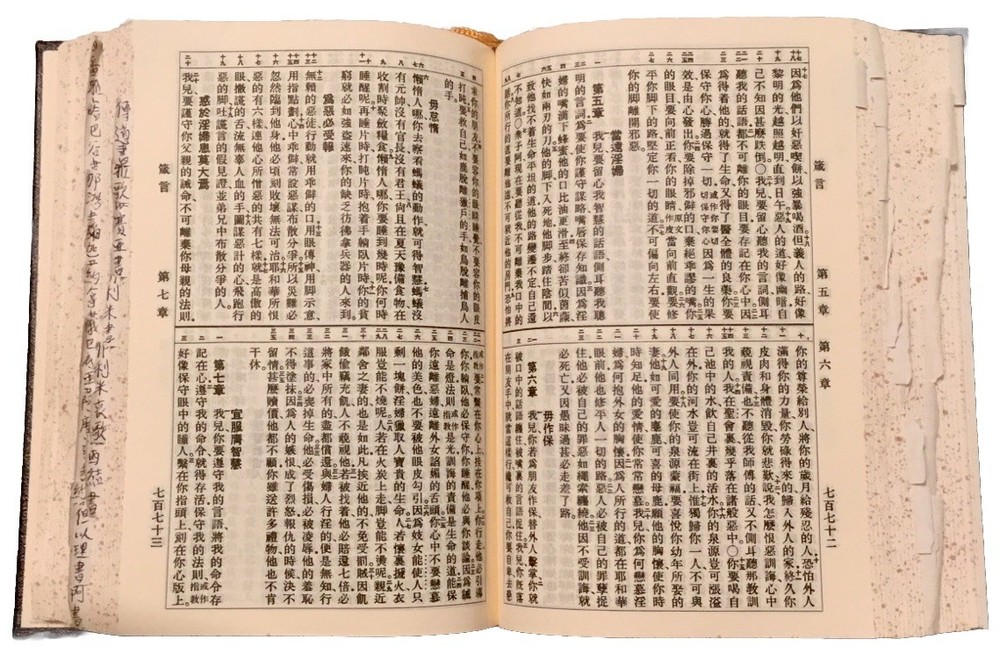 箴言
第五章
第六章
七百七十二
因爲他們以奸惡喫餅以強暴喝酒但義人的路好像
黎明的光越照越明直到日午惡人的道好像幽暗自
己不知因甚麼跌倒〇我兒要留心聽我的言詞側耳
聽我的話語都不可離你的眼目要存記在你心中因
爲得着他的就得了生命又得了醫全體的良藥你要
保守你心勝過保守一切或作你要切切保守你心因爲一生的果
效是由心發出你要除掉邪僻的口棄絕乖謬的嘴你
的眼目要向前正看你的眼睛原文作皮當向前直觀要修
平你脚下的路堅定你一切的道不可偏向左右要使
你的脚離開邪惡
當遠淫婦
第五章 我兒要留心我智慧的話語側耳聽我聰
明的言詞爲要使你謹守謀略嘴唇保存知識因爲淫
婦的嘴滴下蜂蜜他的口比油更滑至終卻苦似茵蔯
快如兩刃的刀他的脚下入死地他脚步踏住陰間以
致他找不着生命平坦的道他的路變遷不定自己還
不知道〇衆子阿現在要聽從我不可離棄我口中的
話你所行的道要離他遠不可就近他的房門恐怕將
你的尊榮給別人將你的歲月給殘忍的人恐怕外人
滿得你的力量你勞碌得來的歸入外人的家終久你
皮肉和身體消毀你就悲歎說我怎麼恨惡訓誨心中
藐視責備也不聽從我師傅的話又不側耳聽那教訓
我的人我在聖會裏幾乎落在諸般惡中〇你要喝自
己池中的水飲自己井裏的活水你的泉源豈可漲溢
在外你的河水豈可流在街上惟獨歸你一人不可與
外人同用要使你的泉源蒙福要喜悅你幼年所娶的
妻他如可愛的麀鹿可喜的母鹿願他的胸懷使你時
時知足他的愛情使你常常戀慕我兒你爲何戀慕淫
婦爲何抱外女的胸懷因爲人所行的道都在耶和華
眼前他也修平人一切的路惡人必被自己的罪孽捉
住他必被自己的罪惡如繩索纏繞他因不受訓誨就
必死亡又因愚昧過甚必走差了路
毋作保
第六章 我兒你若爲朋友作保替外人擊掌你就
被口中的話語纏住被嘴裏的言語捉住我兒你既落
在朋友手中就當這樣行纔可救自己你要自卑去懇
箴言
第七章
七百七十三
求你的朋友不要容你的眼睛睡覺不要容你的眼皮
打盹要救自己如鹿脫離獵戶的手如鳥脫離捕鳥人
的手
毋怠惰
懶惰人哪你去察看螞蟻的動作就可得智慧螞蟻沒
有元帥沒有官長沒有君王尙且在夏天豫備食物在
收割時聚斂糧食懶惰人哪你要睡到幾時呢你何時
睡醒呢再睡片時打盹片時抱着手躺臥片時你的貧
窮就必如強盜速來你的缺乏彷彿拿兵器的人來到
爲惡必受報
無賴的惡徒行動就用乖僻的口用眼傳神用脚示意
用指點劃心中乖僻常設惡謀布散分爭所以災難必
忽然臨到他身他必頃刻敗壞無法可治耶和華所恨
惡的有六樣連他心所憎惡的共有七樣就是高傲的
眼撒謊的舌流無辜人血的手圖謀惡計的心飛跑行
惡的脚吐謊言的假見證並弟兄中布散分爭的人
惑於淫婦患莫大焉
我兒要謹守你父親的誡命不可離棄你母親的法則
或作指敎要常繫在你心上挂在你項上你行走他必引導
你你躺臥他必保守你你睡醒他必與你談論因爲誡
命是燈法則或作指敎是光訓誨的責備是生命的道能保
你遠離惡婦遠離外女諂媚的舌頭你心中不要戀慕
他的美色也不要被他眼皮勾引因爲妓女能使人只
剩一塊餅淫婦獵取人寶貴的生命人若懷裏搋火衣
服豈能不燒呢人若在火炭上走脚豈能不燙呢親近
鄰舍之妻的也是如此凡挨近他的不免受罰賊因飢
餓偷竊充飢人不藐視他若被找着他必賠還七倍必
將家中所有的盡都償還與婦人行淫的便是無知行
這事的必喪掉生命他必受傷損必被凌辱他的羞恥
不得塗抹因爲人的嫉恨成了烈怒報仇的時候決不
留情甚麼贖價他都不顧你雖送許多禮物他也不肯
干休
宜服膺智慧
第七章 我兒你要遵守我的言語將我的命令存
記在心遵守我的命令就得存活保守我的法則或作指敎
好像保守眼中的瞳人繫在你指頭上刻在你心版上